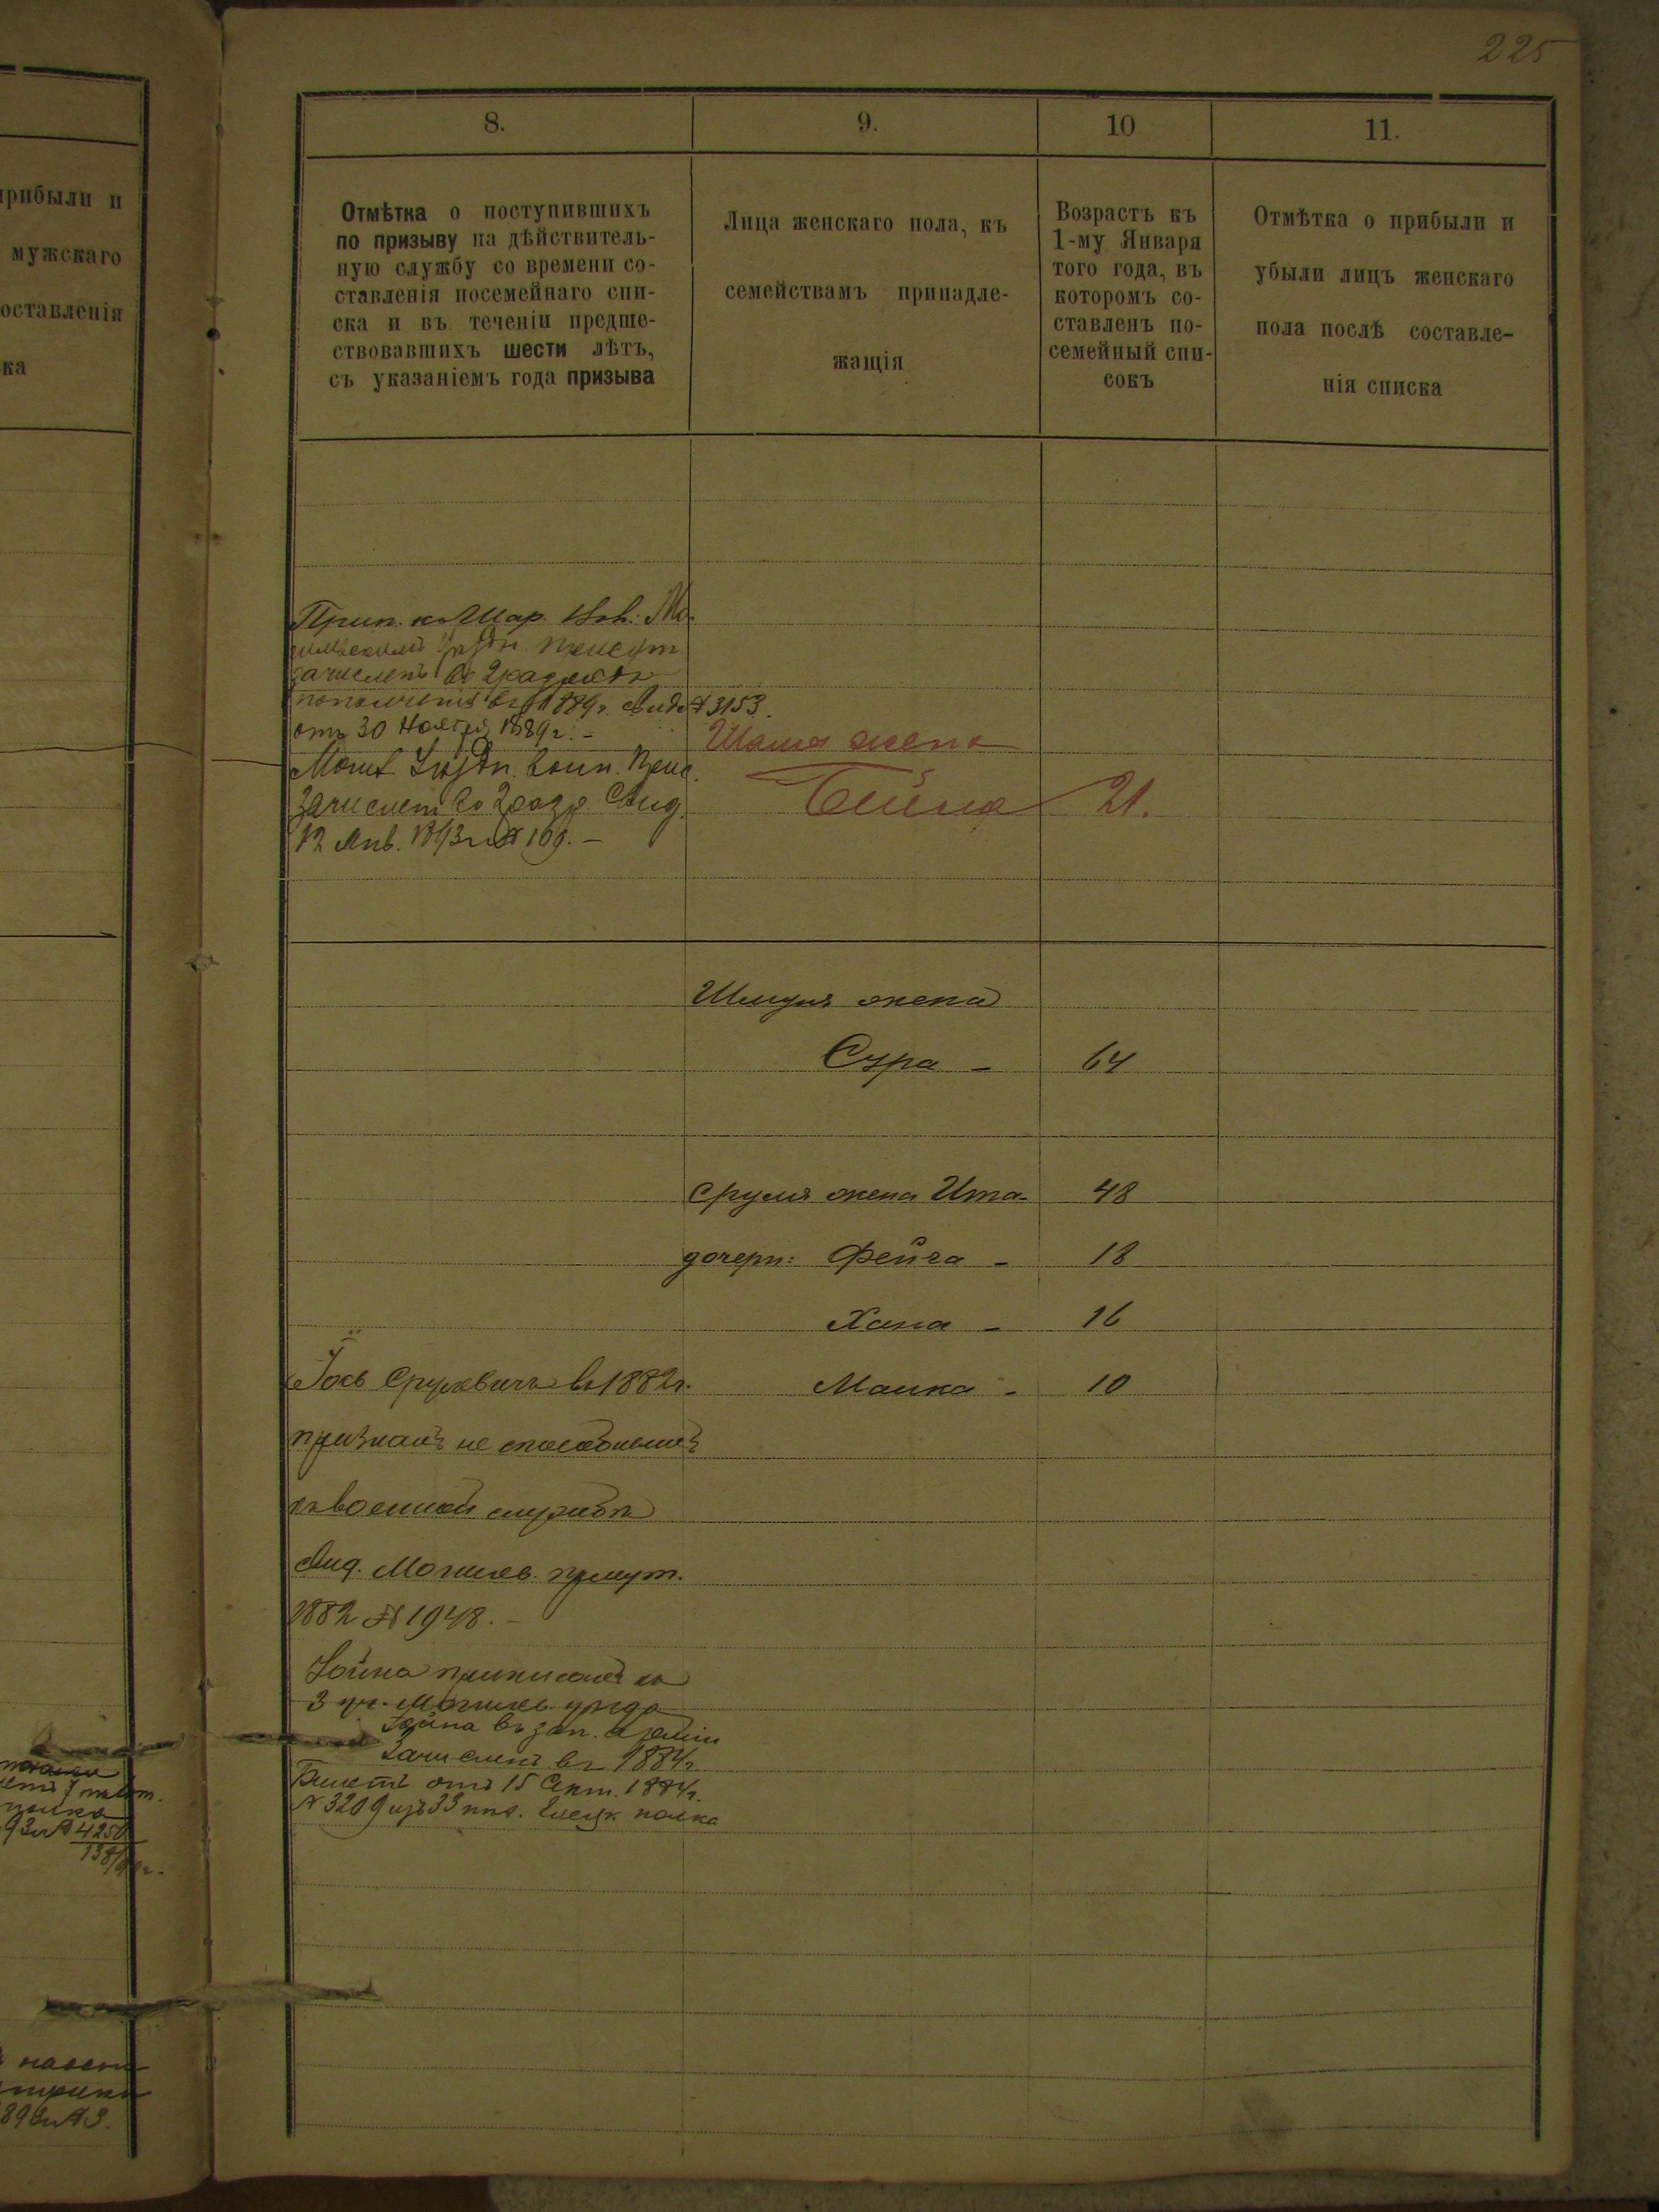 225
8.
9.
10
11.
Отмѣтка о поступившихъ
по призыву на дѣйствитель-
ную службу со времени со-
ставленія посемейнаго спи-
ска и въ теченіи предше-
ствовавшихъ шести лѣтъ,
съ указаніемъ года призыва
Лица женскаго пола, къ
семействамъ принадле-
жащія
Возрастъ къ
1-му Января
того года, въ
которомъ со-
ставленъ по-
семейный спи-
сокъ
Отмѣтка о прибыли и
убыли лицъ женскаго
пола послѣ составле-
нія списка
прибыли и
мужскаго
оставленія
ка
зачисленъ во 2 разрядъ
ополченія въ 1889 г. Свид № 3153.
отъ 30 Ноября 1889 г. –
зачисленъ во 2 разр. Свид.
12 Янв. 1893 г № 109. –
жена
Бейла 21.
Шмуля жена
Сура – 64
Сруля жена Ита - 48
дочери: Фейга – 18
Хана – 16
Малка - 10
Іось Срулевичъ въ 1882 г.
признанъ не способнымъ
къ военной службѣ
Свид. Могилев. присут.
1882 № 1948. –
приписанъ къ
3 уч. Могилев. уѣзда
въ зап. арміи
Зачисленъ въ 1884 г
Билетъ отъ 15 Сент. 1884 г.
№ 3209 изъ 33 пѣх. Елецк полка
полка
4250